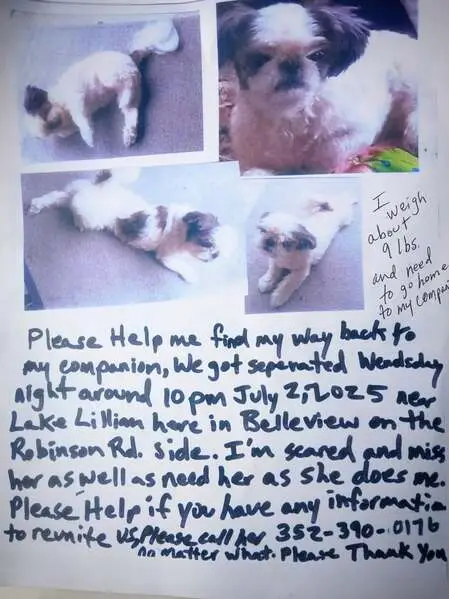 I
weigh
about
9 lbs.
and need
to go home
to my compan
Please Help me find my way back to
my companion, We got seperated Wendsday
night around 10pm July 2, 2025 near
Lake Lillian here in Belleview on the
Robinson Rd. Side. I'm scared and miss
her as well as need her as she does me.
Please Help if you have any informatio
to reunite us, Please call her 352-390-0176
no matter what. Please Thank You